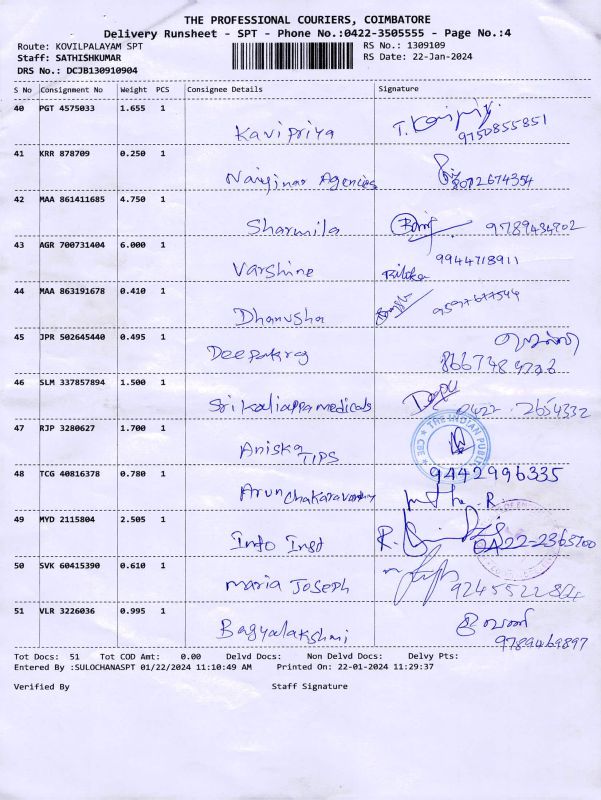 THE PROFESSIONAL COURIERS, COIMBATORE
Delivery Runsheet - SPT - Phone No.:0422-3505555 - Page No.:4
Route: KOVILPALAYAM SPT RS No.: 1309109
Staff: SATHISHKUMAR RS Date: 22-Jan-2024
DRS No.: DCJB130910904
S No Consignment No Weight PCS Consignee Details Signature
40 PGT 4575033 1.655 1
Kavipriya T. 9750855851
41 KRR 878709 0.250 1
Nayinar Agencies 8072674354
42 MAA 861411685 4.750 1
Sharmila 9789434702
43 AGR 700731404 6.000 1
Varshine 9944718911
44 MAA 863191678 0.410 1
Dhanusha 9597677544
45 JPR 502645440 0.495 1
Deepakraj
46 SLM 337857894 1.500 1
Sri Kaliappa medicals Deepu 0422 2654332
47 RJP 3280627 1.700 1 THE INDIAN PUBLIC
Aniska TIPS
48 TCG 40816378 0.780 1 9442996335
Arun Chakaravarthy
49 MYD 2115804 2.505 1
Info Inst R. 0422-2365700
50 SVK 60415390 0.610 1
maria Joseph
51 VLR 3226036 0.995 1
Bagyalakshmi 9789469897
Tot Docs: 51 Tot COD Amt: 0.00 Delvd Docs: Non Delvd Docs: Delvy Pts:
Entered By :SULOCHANASPT 01/22/2024 11:10:49 AM Printed On: 22-01-2024 11:29:37
Verified By Staff Signature